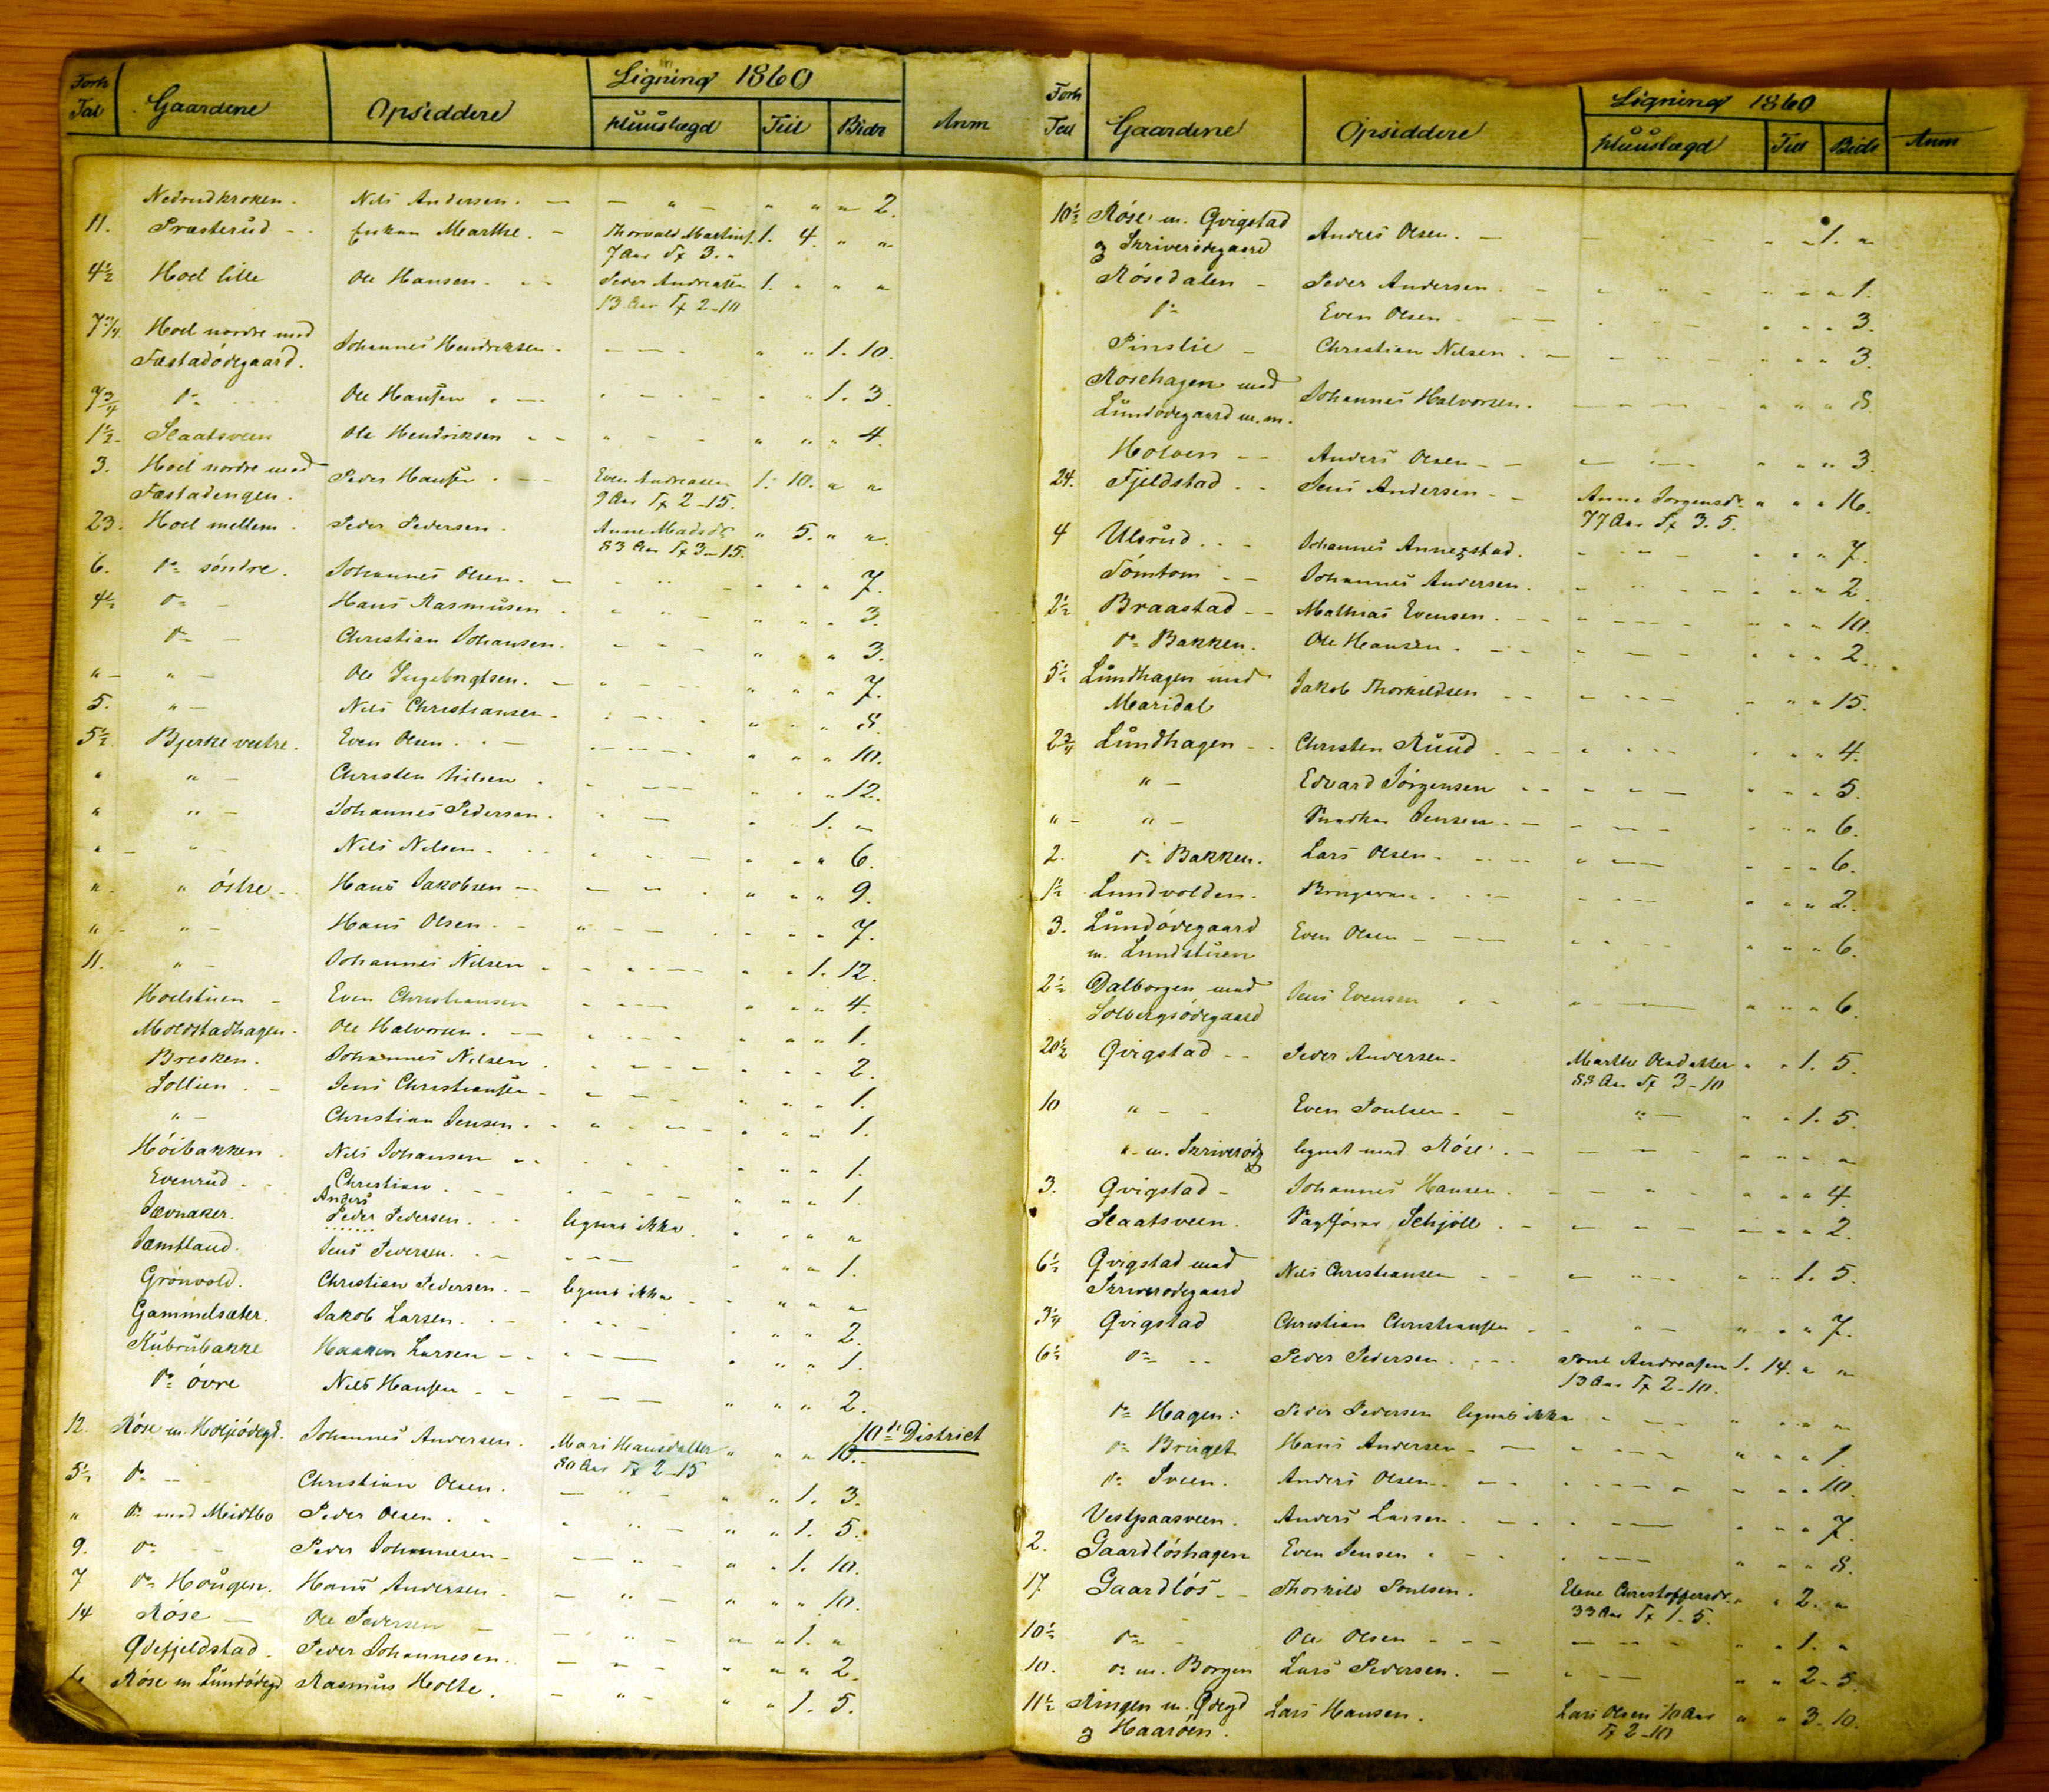 Forh Tal Gaardene Opsiddere Ligning 1860 Anm
Huuslægd Till Bidr
Nedrudkroken. Nils Andersen. — — " — " " " 2.
11. Præsterud - - Enkan Marthe. — Thorvald Martins. 1. 4. " "
7 Aar Tx 3. "
4½ Hoel lille Ole Hansen. - - Peder Andreasen 1. " " "
13 Aar Tx 2-10
Hoel nordre med
Fæstadödegaard. Johannes Hendriksen. — — " " 1. 10.
7¾ Do - - - Ole Hansen . — " " 1. 3.
1½ Slaatsveen Ole Hendriksen - - " " " 4.
3. Hoel nordre med
Fæstadengen. Peder Hansen . - - Even Andreasen 1. 10. " "
9 Aar Tx 2-15.
23. Hoel mellem. Peder Pedersen. Anne Madsdr " 5. " "
83 Aar Tx 3-15.
6. Do söndre. Johannes Olsen. — " " " 7.
4½ Do — Hans Rasmusen . " " " 3.
Do — Christian Johansen. " " " 3.
" — " — Ole Ingeborgtsen. — " " " 7.
5. " — Nils Christiansen. " " " 8.
5½ Bjerke vestre. Even Olsen . . — " " " 10.
" " — Christen Nilsen . " " " 12.
" " — Johannes Pedersen. " " 1. "
" — " — Nils Nilsen - . " " " 6.
" - " östre - Hans Jakobsen — " " " 9.
" - " — Hans Olsen . - " " " 7.
11. " — Johannes Nilsen - " " 1. 12.
Hoelstuen - Even Christiansen " " " 4.
Moldstadhagen - Ole Halvorsen. - — " " " 1.
Bresken. Johannes Nilsen . " " " 2.
Sollien. - Jens Christiansen - " " " 1.
" — Christian Jensen . " " " 1.
Höibakken . Nils Johansen - . " " " 1.
Evenrud. - Christian . - - " " " 1.
Anders
Jævnaker. Peder Pedersen. . - lignes ikke . " " " "
Jæmtland. Jens Pedersen. . — " " " 1.
Grönvold. Christian Pedersen. - lignes ikke - " " " "
Gammelsæter. Jakob Larsen. . - " " " 2.
Kubrubakke Haaken Larsen - - " " " 1.
Do övre Nils Hansen - - " " " 2.
10de District
12. Röse m. Johannes Andersen. Mari Hansdatter " " " 10.
80 Aar Tx 2-15
5½ Do — - Christian Olsen. " " 1. 3.
" Do med Midtbo Peder Olsen. . " " 1. 5.
9. Do - - Peder Johannesen - " " 1. 10.
7 Do Hougen. Hans Andersen . " " " 10.
14 Röse — Ole Pedersen — " " 1. "
Qvefjeldstad. Peder Johannesen. " " " 2.
Röse m Lundödegd Rasmus Holte. " " 1. 5.
Forh Tal Gaardene Opsiddere Ligning 1860 Anm
Huuslægd Till Bidr
10½ Röse m. Qvigstad
& Skriverödegaard Anders Olsen. — " " 1. "
Rösedalen — Peder Andersen. — " " " 1.
Do Even Olsen - - — " " " 3.
Pinslie — Christian Nilsen. — " " " 3.
Rosehagen med
Lundödegaard m.m. Johannes Halvorsen. " " " 8.
Holven - - Anders Olsen - — " " " 3.
24. Fjeldstad . - Jens Andersen - - Anne Jorgensdr " " " 16.
77 Aar Tx 3. 5.
4 Ulsrud . . - Johannes Annegstad. " " " 7.
Tömtom - - Johannes Andersen. " " " 2.
2½ Braastad - - Mathias Evensen. - - " " " 10.
Do Bakken. Ole Hansen . - - " " " 2.
5½ Lundhagen med
Maridal Jakob Thorkildsen - - " " " 15.
2¾ Lundhagen - . Christen Ruud . - - " " " 4.
" — Edvard Jörgensen - - " " " 5.
" — " — Jensen - . — " " " 6.
2. Do Bakken. Lars Olsen . - — " " " 6.
1½ Lundvolden. " " " 2.
3. Lundödegaard
m. Lundstuen Even Olsen - - — " " " 6.
2½ Dalborgen med
Solbergsödegaard Jens Evensen . - " " " 6.
20½ Qvigstad - - Peder Andersen - Marthe Olsdatter " " 1. 5.
88 Aar Tx 3-10
10 " — - Even Poulsen - - " — " " 1. 5.
" — m. Skriverödg lignet med Röse . — " " " "
3. Qvigstad - Johannes Hansen. " " " 4.
Slaatsveen. Schjöll . - " " " 2.
6½ Qvigstad med
Skriverodegaard Nils Christiansen - - " " 1. 5.
3¼ Qvigstad Christian Christiansen - " " " 7.
6½ Do - - Peder Pedersen . - - Poul Andreasen 1. 14. " "
13 Aar Tx 2-10.
Do Hagen: Peder Pedersen lignes ikke " " " "
Do Bruget Hans Andersen - — " " " 1.
Do Sveen. Anders Olsen. - " " " 10.
Vestpaasveen. Anders Larsen. - " " " 7.
2. Gaardlöshagen Even Jensen . - " " " 8.
17. Gaardlös - - Thorkild Poulsen. Elene Christoffersdr " " 2. "
33 Aar Tx 1. 5.
10½ Do - Ole Olsen - - - " " 1. "
10. Do m. Borgen Lars Pedersen. — " " 2-5.
11½ Ringen m. Ödegd
& Haaröen. Lars Hansen. Lars Olsen 10 Aar " " 3-10.
Tx 2-10